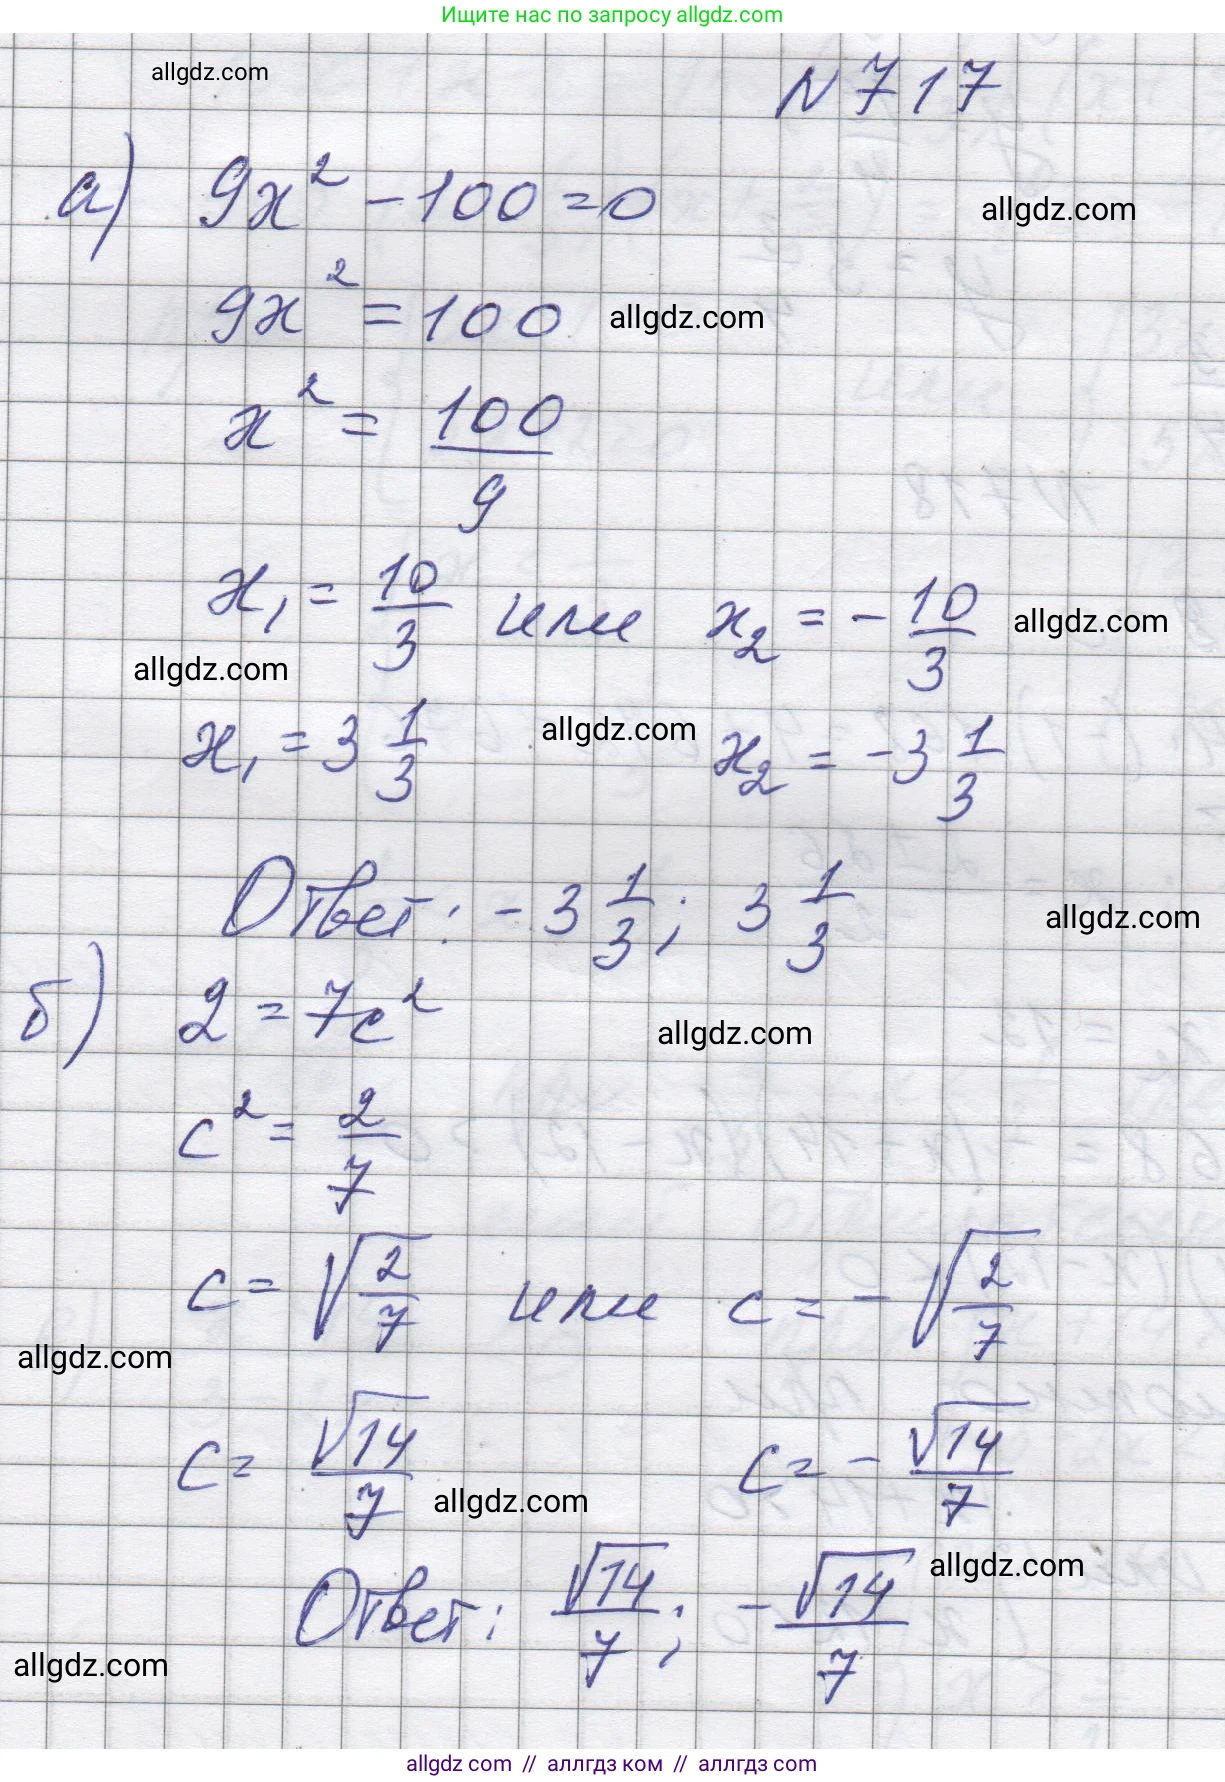 Ищите нас по запросу allgdz.com
allgdz.com
N 717
а) 9x² - 100 = 0
allgdz.com
9x² = 100
allgdz.com
x² = 100/9
x₁ = 10/3 или x₂ = - 10/3
allgdz.com
allgdz.com
x₁ = 3 1/3 x₂ = -3 1/3
allgdz.com
Ответ: - 3 1/3; 3 1/3
allgdz.com
б) 2 = 7c²
allgdz.com
c² = 2/7
c = √(2/7) или c = - √(2/7)
allgdz.com
c = √14/7 c = - √14/7
allgdz.com
allgdz.com
Ответ: √14/7; - √14/7
allgdz.com
allgdz.com // аллгдз ком // аллгдз.com